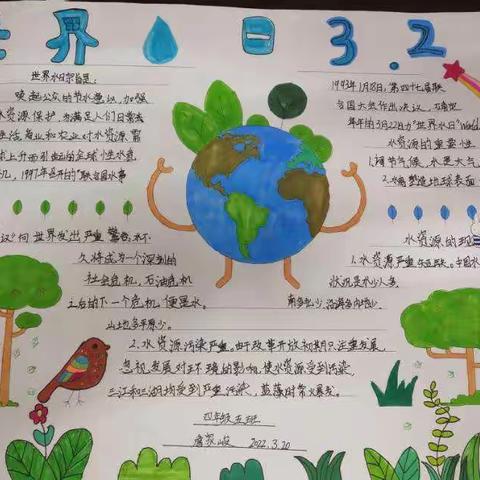 世界 日 3.2
世界水日宗旨是：
唤起公众的节水意识，加强
水资源保护。为满足人们日常生
活、商业和农业对水资源需
求上升而引起的全球性水危
机，1977年召开的"联合国水事
议"向世界发出严重警告：水不
久将成为一个深刻的
社会危机，石油危机
之后的下一个危机便是水。
1993年1月18日，第四十七届联
合国大会作出决议，
年年的3月22日为"世界水日"World
水资源的重要性
1.调节气候，水是大气
2.水塑造地球表面
水资源的现
1.水资源严重
状况是水少人多，
南多北少，沿海多内地少，
山地多平原少。
2.水资源污染严重。由于改革开放初期只注重发展，
忽视发展对环境的影响，使水资源受到污染，
三江和三湖均受到严重污染，蓝藻时常爆发。
四年级五班
2022.3.20